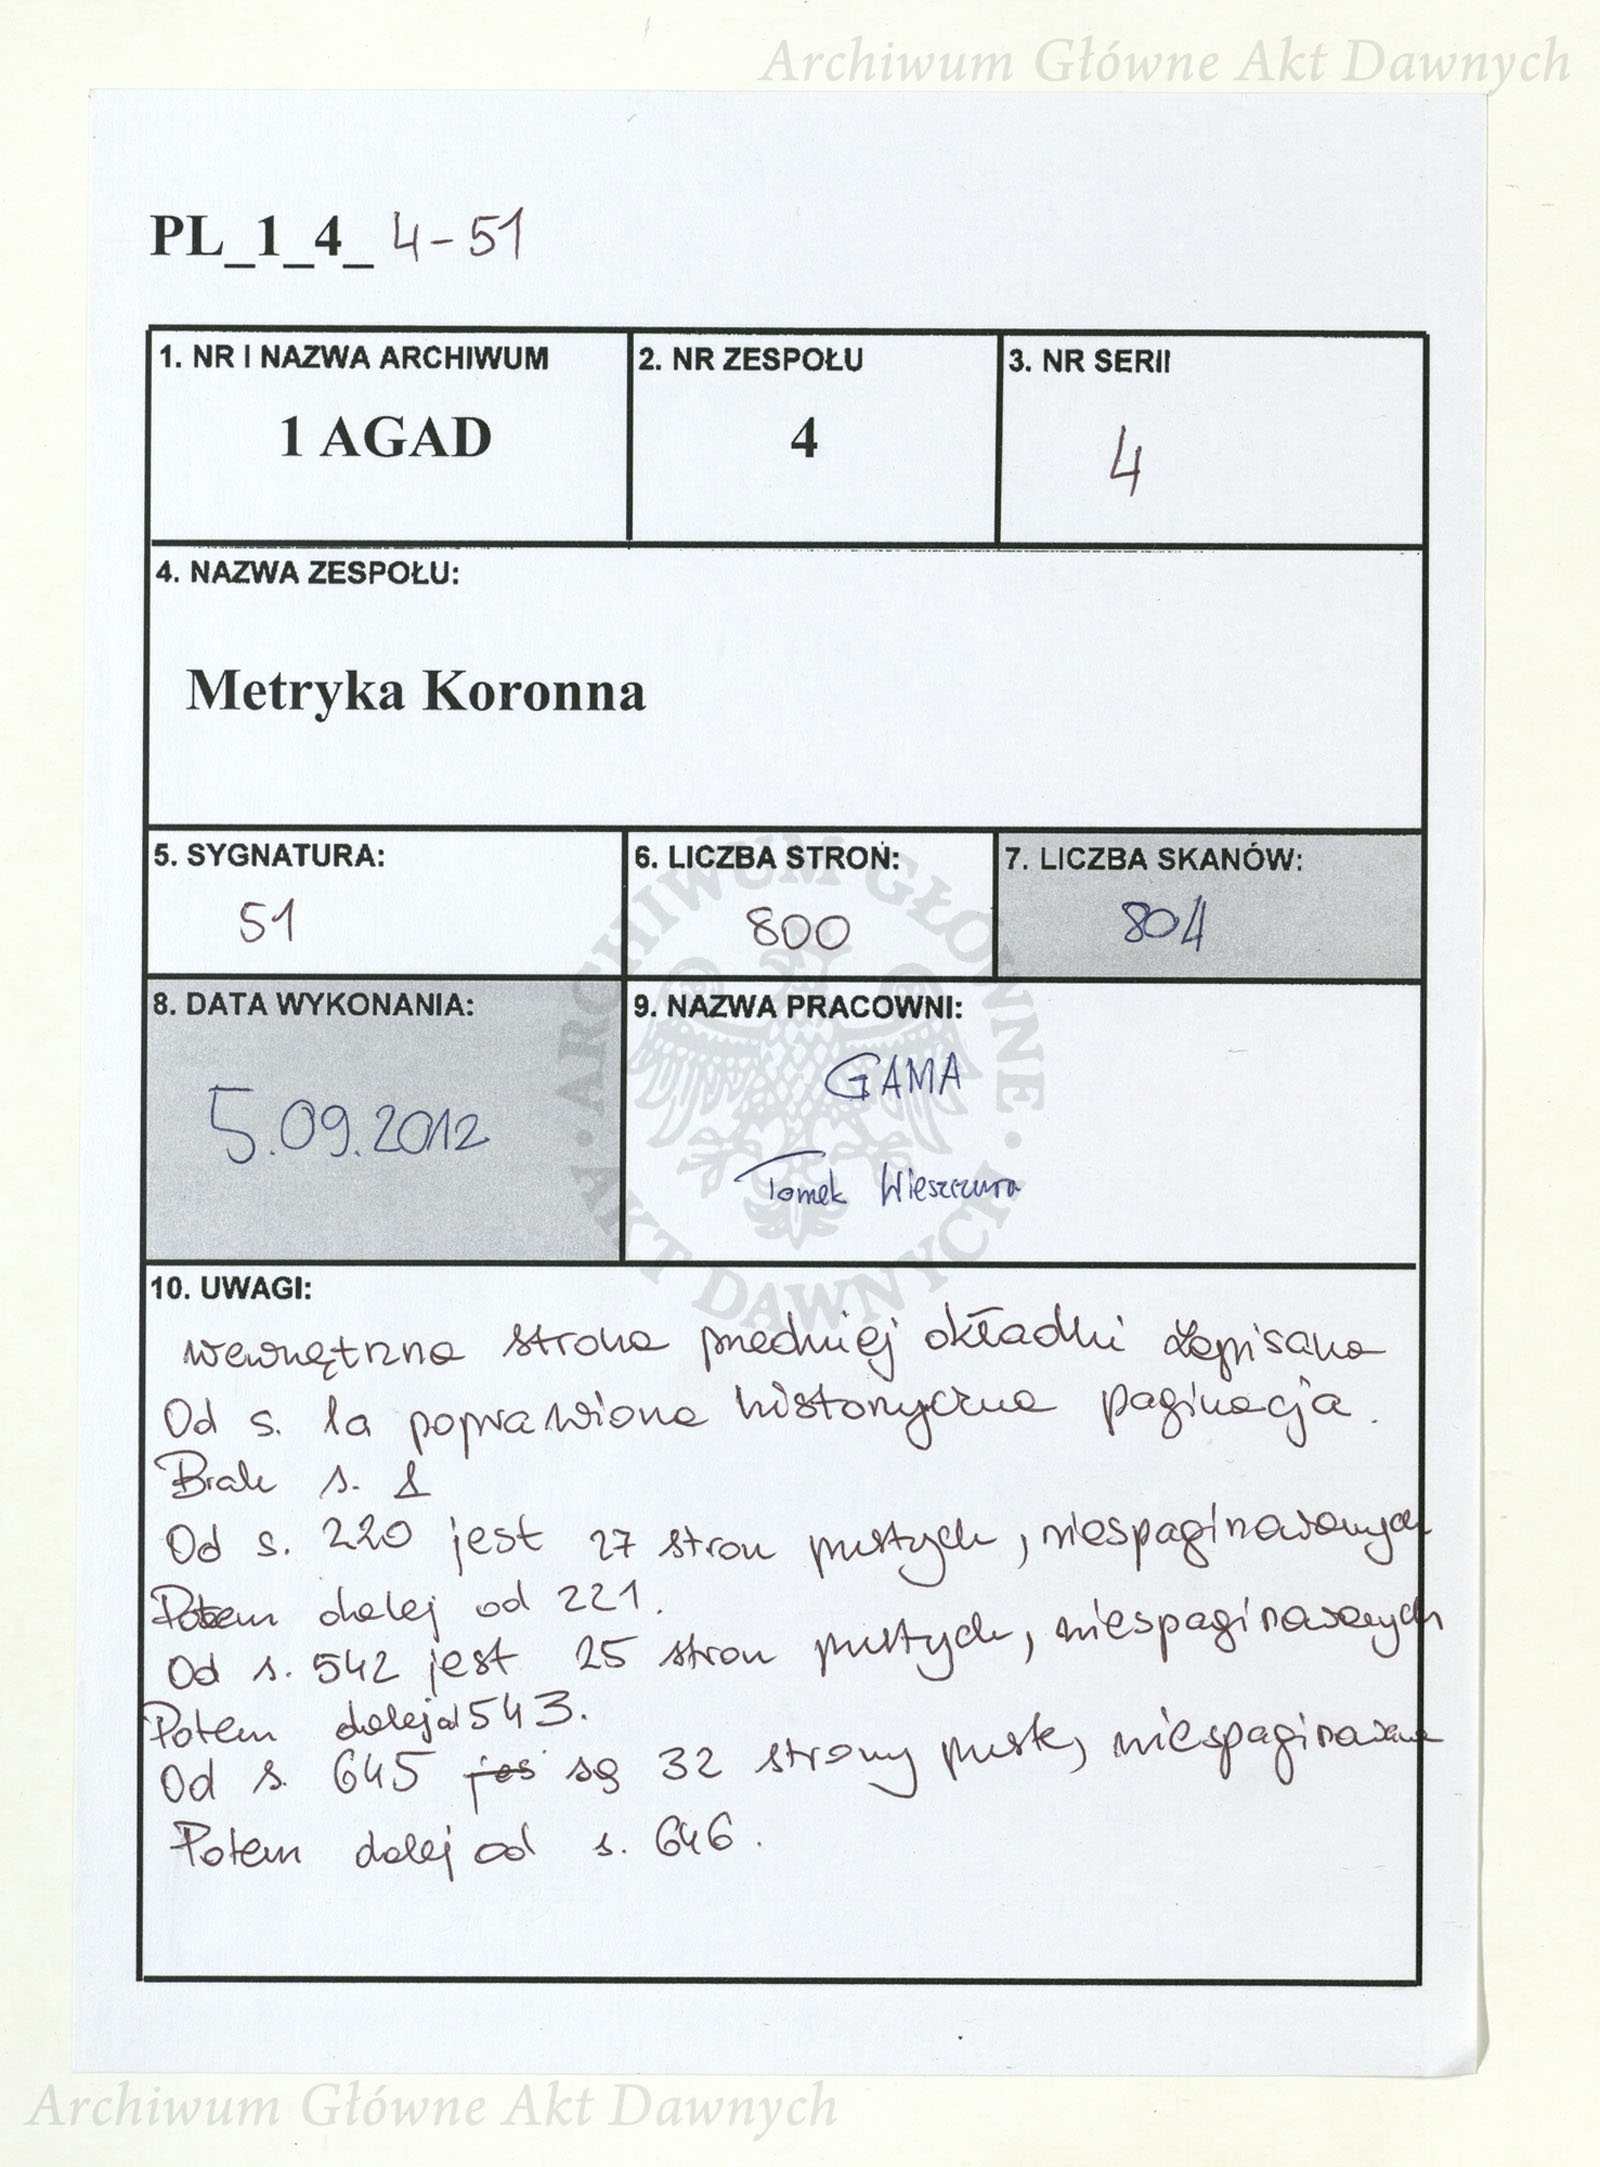 Archiwum Główne Akt Dawnych
PL_1_4_ 4-51
1. NR I NAZWA ARCHIWUM
1 AGAD
2. NR ZESPOŁU
4
3. NR SERII
4
4. NAZWA ZESPOŁU:
Metryka Koronna
5. SYGNATURA:
51
6. LICZBA STRON:
800
7. LICZBA SKANÓW:
804
8. DATA WYKONANIA:
5.09.2012
9. NAZWA PRACOWNI:
GAMA
Tomek Wieszczura
ARCHIWUM GŁÓWNE · AKT DAWNYCH ·
10. UWAGI:
wewnętrzna strona przedniej okładki zapisana
Od s. 1a poprawiona historyczna paginacja.
Brak s. 1
Od s. 220 jest 27 stron pustych, niespaginowanych
Potem dalej od 221.
Od s. 542 jest 25 stron pustych, niespaginowanych
Potem dalej od 543.
Od s. 645 jes są 32 strony puste, niespaginowane
Potem dalej od s. 646.
Archiwum Główne Akt Dawnych